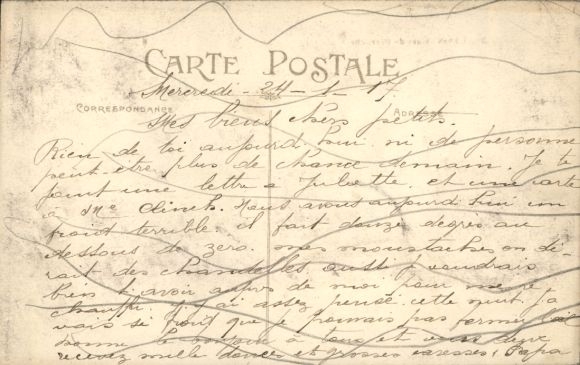 CARTE POSTALE
Mercredi - 24 - 1 - 17
CORRESPONDANCE
Mes biens chers petits.
Rien de toi aujourd'hui ni de personne
peut-être plus de chance demain. Je te
joint une lettre a Juliette et une carte
a Mme Clinch. Nous avons aujourd'hui un
froid terrible. il fait douze degrés au
dessous de zero. mes moustaches on di-
rait des chandelles aussi je voudrais
bien t'avoir auprès de moi pour me re
chauffer. j'y ai assez pensé cette nuit. j'a
vais si froid que je pouvais pas fermer l'œil
donne le bonjour à tous et vous deux
recevez mille douces et grosses caresses. Papa